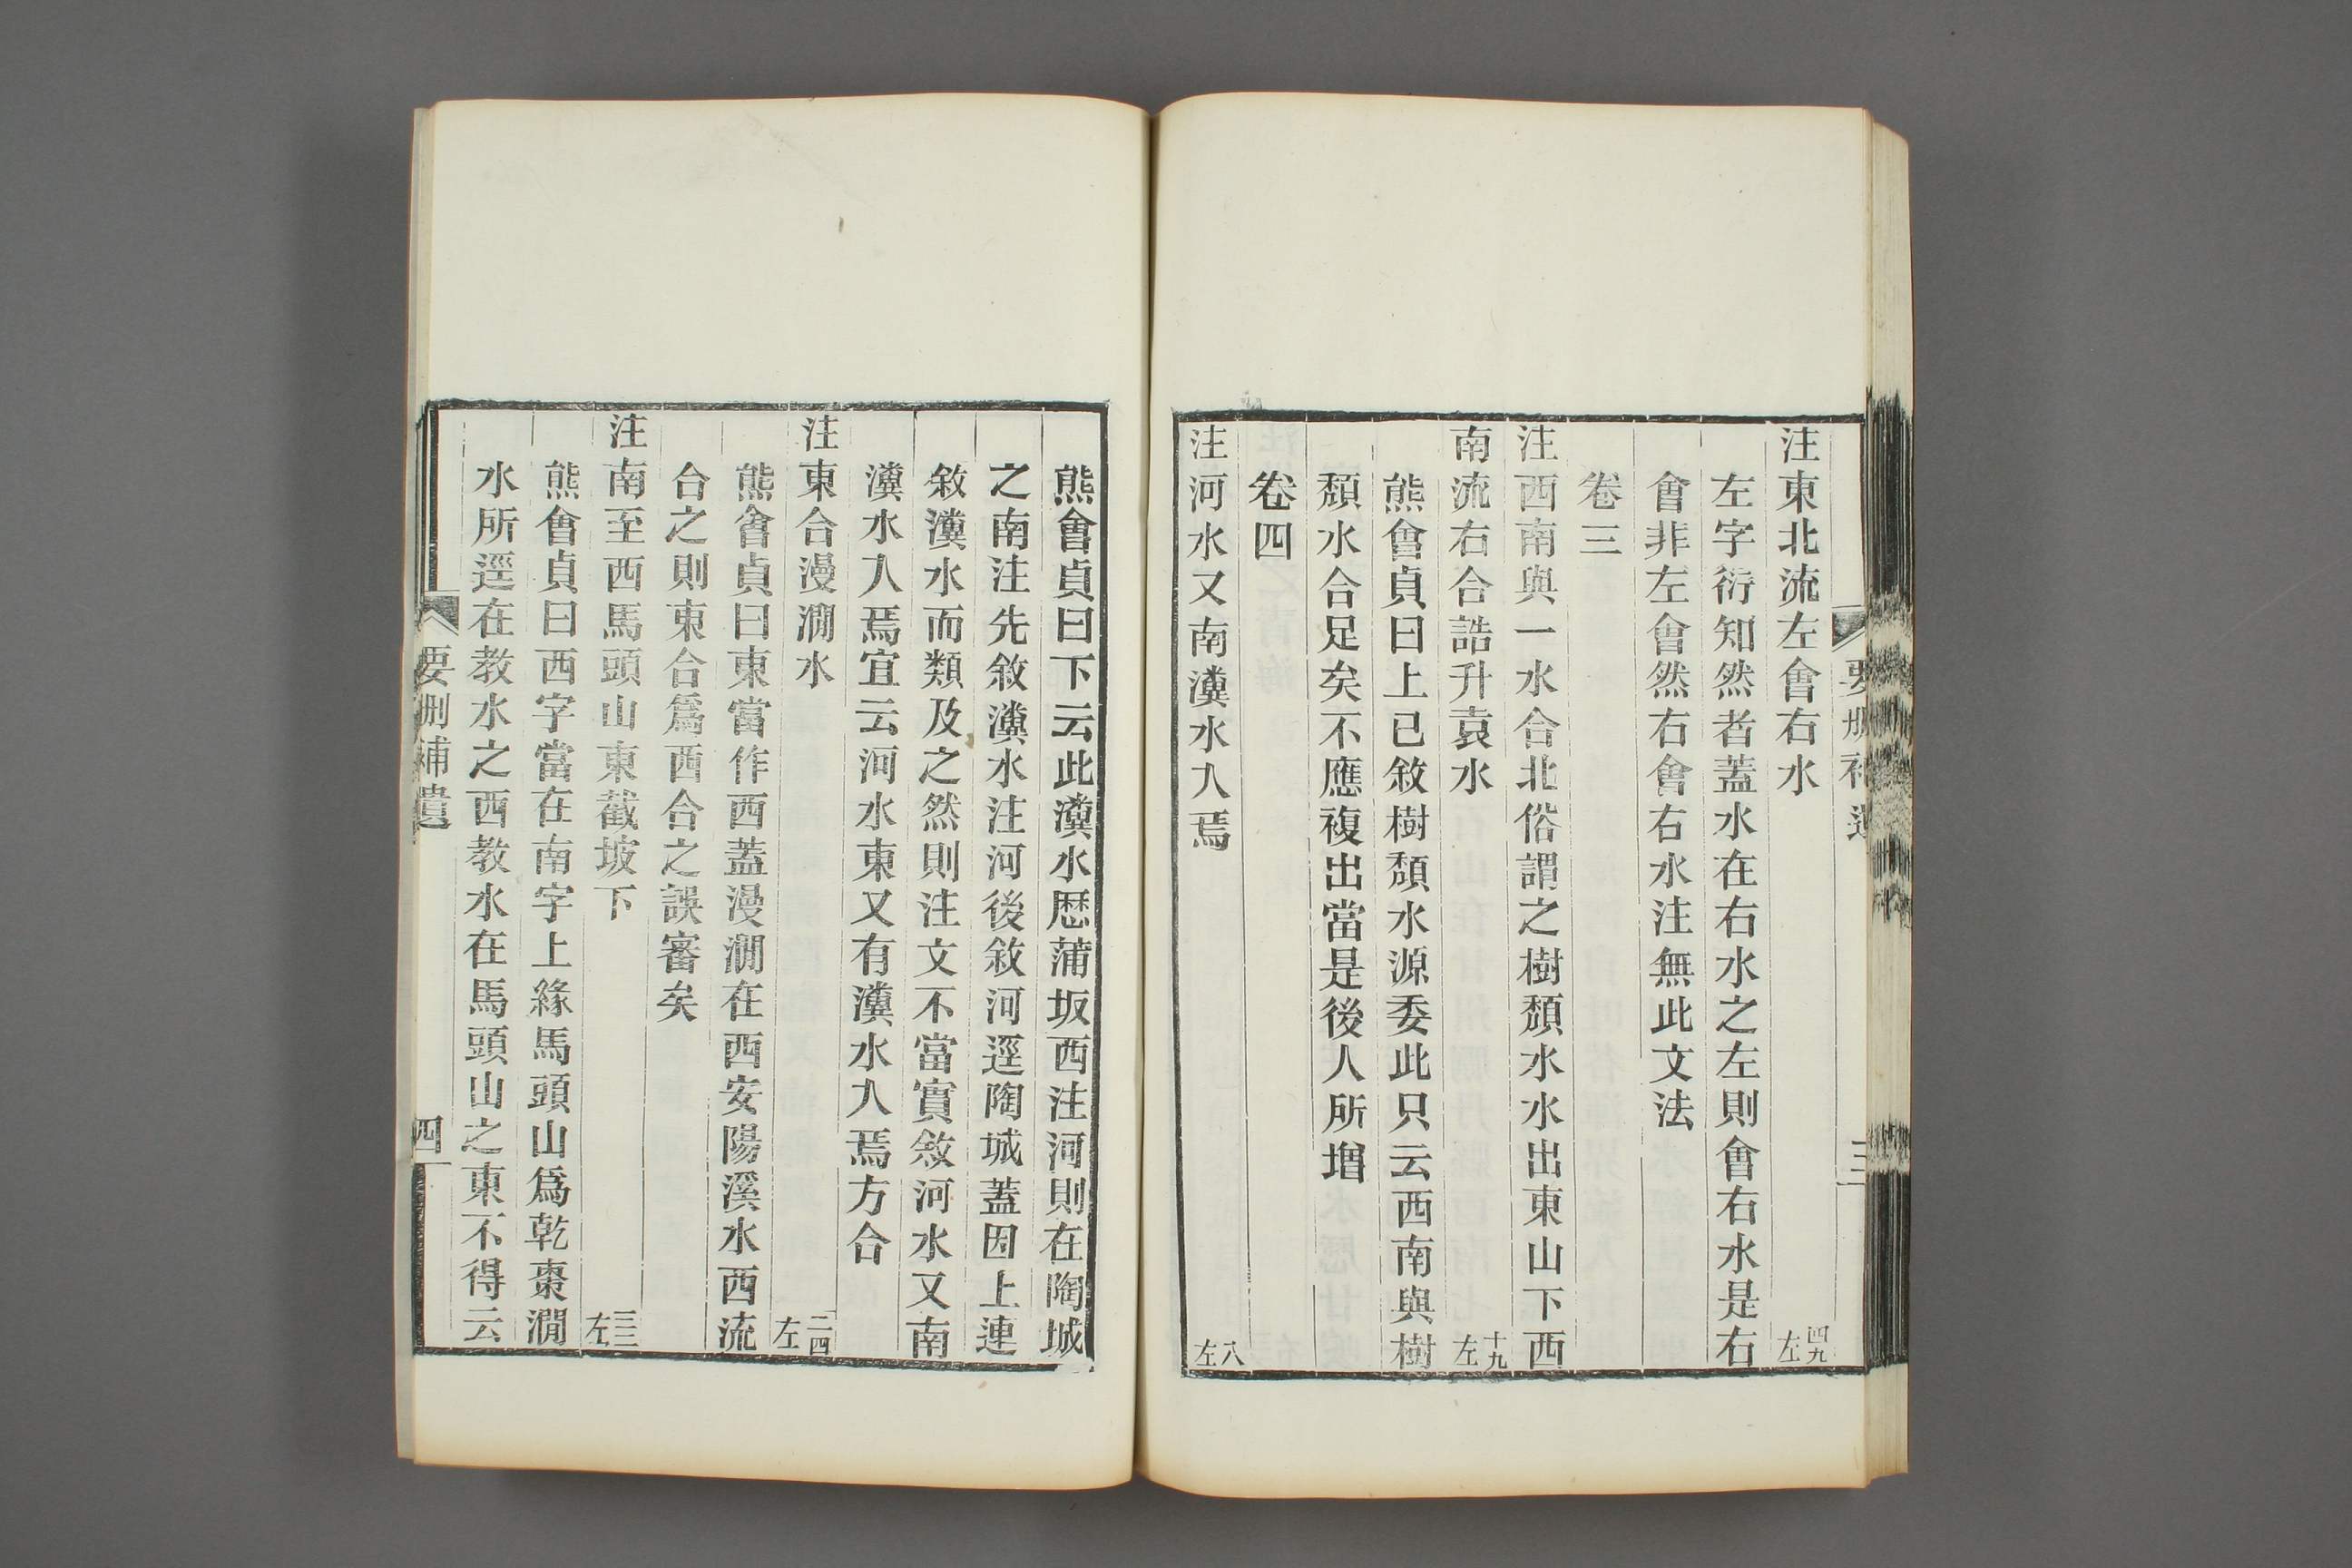 注東北流左會右水 四九左
左字衍知然者蓋水在右水之左則會右水是右
會非左會然右會右水注無此文法
卷三
注西南與一水合北俗謂之樹頹水水出東山下西
南流右合誥升袁水 十九左
熊會貞曰上已敘樹頹水源委此只云西南與樹
頹水合足矣不應複出當是後人所增
卷四
注河水又南瀵水入焉 八左
熊會貞曰下云此瀵水歷蒲坂西注河則在陶城
之南注先敘瀵水注河後敘河逕陶城蓋因上連
敘瀵水而類及之然則注文不當實敘河水又南
瀵水入焉宜云河水東又有瀵水入焉方合
注東合漫澗水 二四左
熊會貞曰東當作西蓋漫澗在西安陽溪水西流
合之則東合爲西合之誤審矣
注南至西馬頭山東截坡下 三三左
熊會貞曰西字當在南字上緣馬頭山爲乾棗澗
水所逕在教水之西教水在馬頭山之東不得云
要刪補遺 四